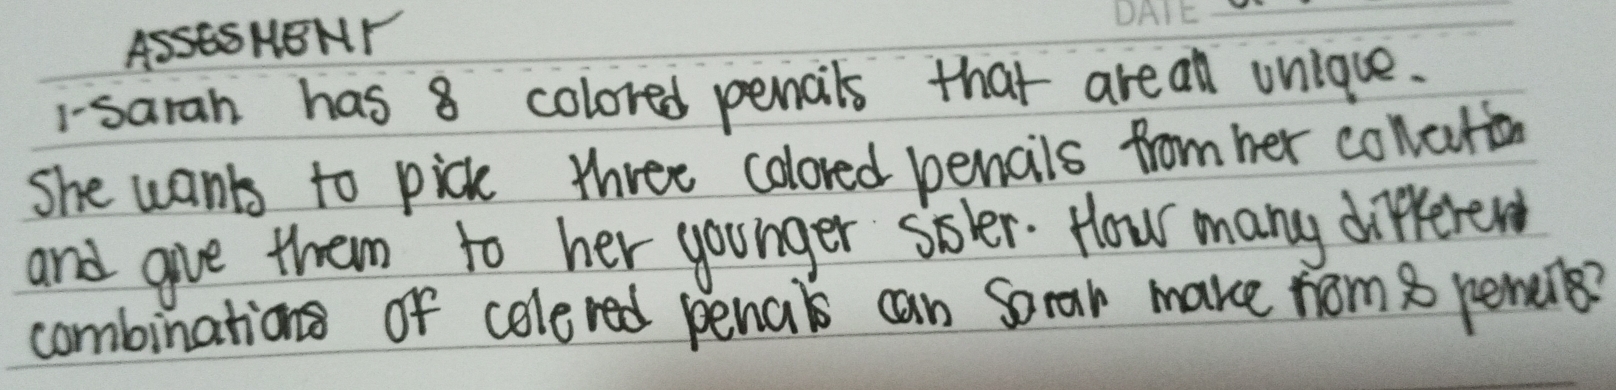 DATE
ASSESMENT
1-Sarah has 8 colored pencils that are all unique.
She wants to pick three colored pencils from her collection
and give them to her younger sister. How many different
combinations of colered pencils can Sarah make from 8 pencils?